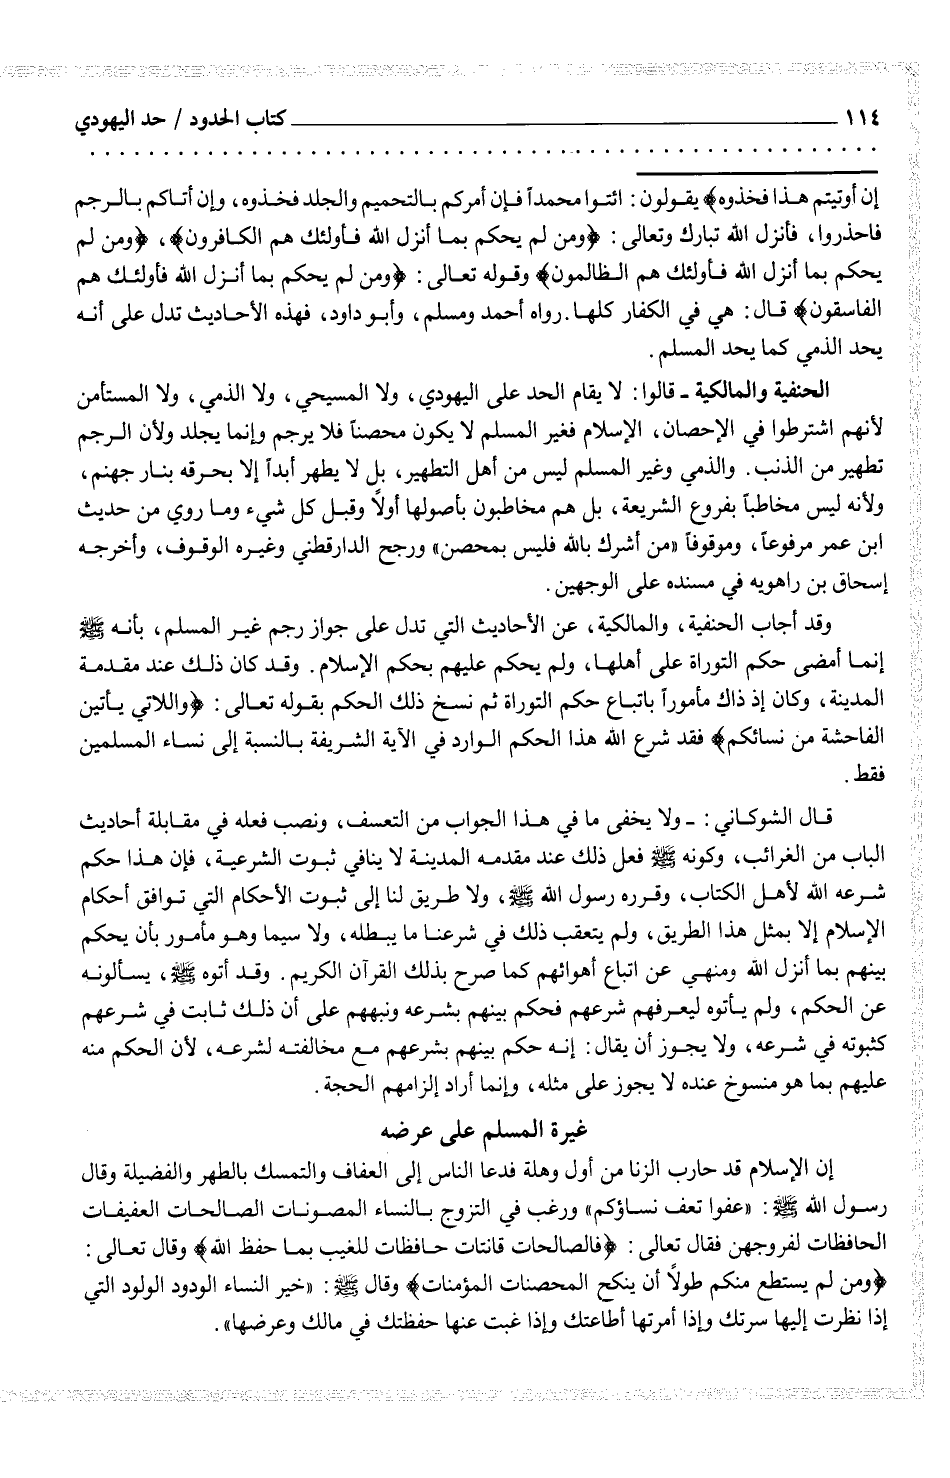 ١١٤ ــــــــــــــــــــ كتاب الحدود / حد اليهودي
إن أوتيتم هذا فخذوه﴾ يقولون: ائتوا محمداً فإن أمركم بالتحميم والجلد فخذوه، وإن أتاكم بالرجم
فاحذروا، فأنزل الله تبارك وتعالى: ﴿ومن لم يحكم بما أنزل الله فأولئك هم الكافرون﴾، ﴿ومن لم
يحكم بما أنزل الله فأولئك هم الظالمون﴾ وقوله تعالى: ﴿ومن لم يحكم بما أنزل الله فأولئك هم
الفاسقون﴾ قال: هي في الكفار كلها. رواه أحمد ومسلم، وأبو داود، فهذه الأحاديث تدل على أنه
يحد الذمي كما يحد المسلم.
الحنفية والمالكية ـ قالوا: لا يقام الحد على اليهودي، ولا المسيحي، ولا الذمي، ولا المستأمن
لأنهم اشترطوا في الإحصان، الإسلام فغير المسلم لا يكون محصناً فلا يرجم وإنما يجلد ولأن الرجم
تطهير من الذنب. والذمي وغير المسلم ليس من أهل التطهير، بل لا يطهر أبداً إلا بحرقه بنار جهنم،
ولأنه ليس مخاطباً بفروع الشريعة، بل هم مخاطبون بأصولها أولاً وقبل كل شيء وما روي من حديث
ابن عمر مرفوعاً، وموقوفاً «من أشرك بالله فليس بمحصن» ورجح الدارقطني وغيره الوقوف، وأخرجه
إسحاق بن راهويه في مسنده على الوجهين.
وقد أجاب الحنفية، والمالكية، عن الأحاديث التي تدل على جواز رجم غير المسلم، بأنه ﷺ
إنما أمضى حكم التوراة على أهلها، ولم يحكم عليهم بحكم الإسلام. وقد كان ذلك عند مقدمة
المدينة، وكان إذ ذاك مأموراً باتباع حكم التوراة ثم نسخ ذلك الحكم بقوله تعالى: ﴿واللاتي يأتين
الفاحشة من نسائكم﴾ فقد شرع الله هذا الحكم الوارد في الآية الشريفة بالنسبة إلى نساء المسلمين
فقط.
قال الشوكاني: ـ ولا يخفى ما في هذا الجواب من التعسف، ونصب فعله في مقابلة أحاديث
الباب من الغرائب، وكونه ﷺ فعل ذلك عند مقدمه المدينة لا ينافي ثبوت الشرعية، فإن هذا حكم
شرعه الله لأهل الكتاب، وقرره رسول الله ﷺ، ولا طريق لنا إلى ثبوت الأحكام التي توافق أحكام
الإسلام إلا بمثل هذا الطريق، ولم يتعقب ذلك في شرعنا ما يبطله، ولا سيما وهو مأمور بأن يحكم
بينهم بما أنزل الله ومنهي عن اتباع أهوائهم كما صرح بذلك القرآن الكريم. وقد أتوه ﷺ، يسألونه
عن الحكم، ولم يأتوه ليعرفهم شرعهم فحكم بينهم بشرعه ونبههم على أن ذلك ثابت في شرعهم
كثبوته في شرعه، ولا يجوز أن يقال: إنه حكم بينهم بشرعهم مع مخالفته لشرعه، لأن الحكم منه
عليهم بما هو منسوخ عنده لا يجوز على مثله، وإنما أراد إلزامهم الحجة.
غيرة المسلم على عرضه
إن الإسلام قد حارب الزنا من أول وهلة فدعا الناس إلى العفاف والتمسك بالطهر والفضيلة وقال
رسول الله ﷺ: «عفوا تعف نساؤكم» ورغب في التزوج بالنساء المصونات الصالحات العفيفات
الحافظات لفروجهن فقال تعالى: ﴿فالصالحات قانتات حافظات للغيب بما حفظ الله﴾ وقال تعالى:
﴿ومن لم يستطع منكم طولاً أن ينكح المحصنات المؤمنات﴾ وقال ﷺ: «خير النساء الودود الولود التي
إذا نظرت إليها سرتك وإذا أمرتها أطاعتك وإذا غبت عنها حفظتك في مالك وعرضها».